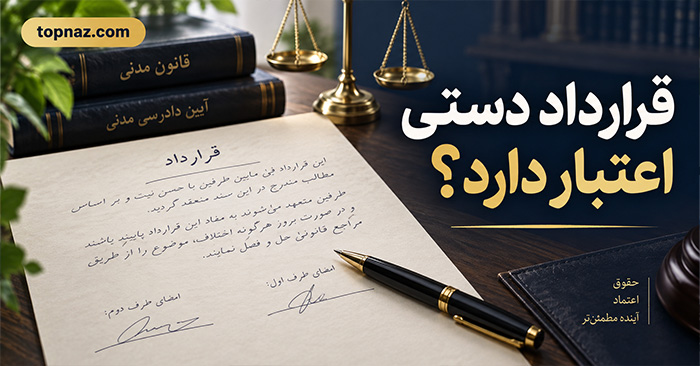 topnaz.com
قانون مدنی
آیین دادرسی مدنی
قرارداد دستی
اعتبار دارد؟
قرارداد
این قرارداد فی مابین طرفین با حسن نیت و بر اساس
مطالب مندرج در این سند منعقد گردید.
طرفین متعهد می‌شوند به مفاد این قرارداد پایبند باشند
و در صورت بروز هرگونه اختلاف، موضوع را از طریق
مراجع قانونی حل و فصل نمایند.
امضای طرف اول:
امضای طرف دوم:
حقوق
اعتماد
آینده مطمئن‌تر